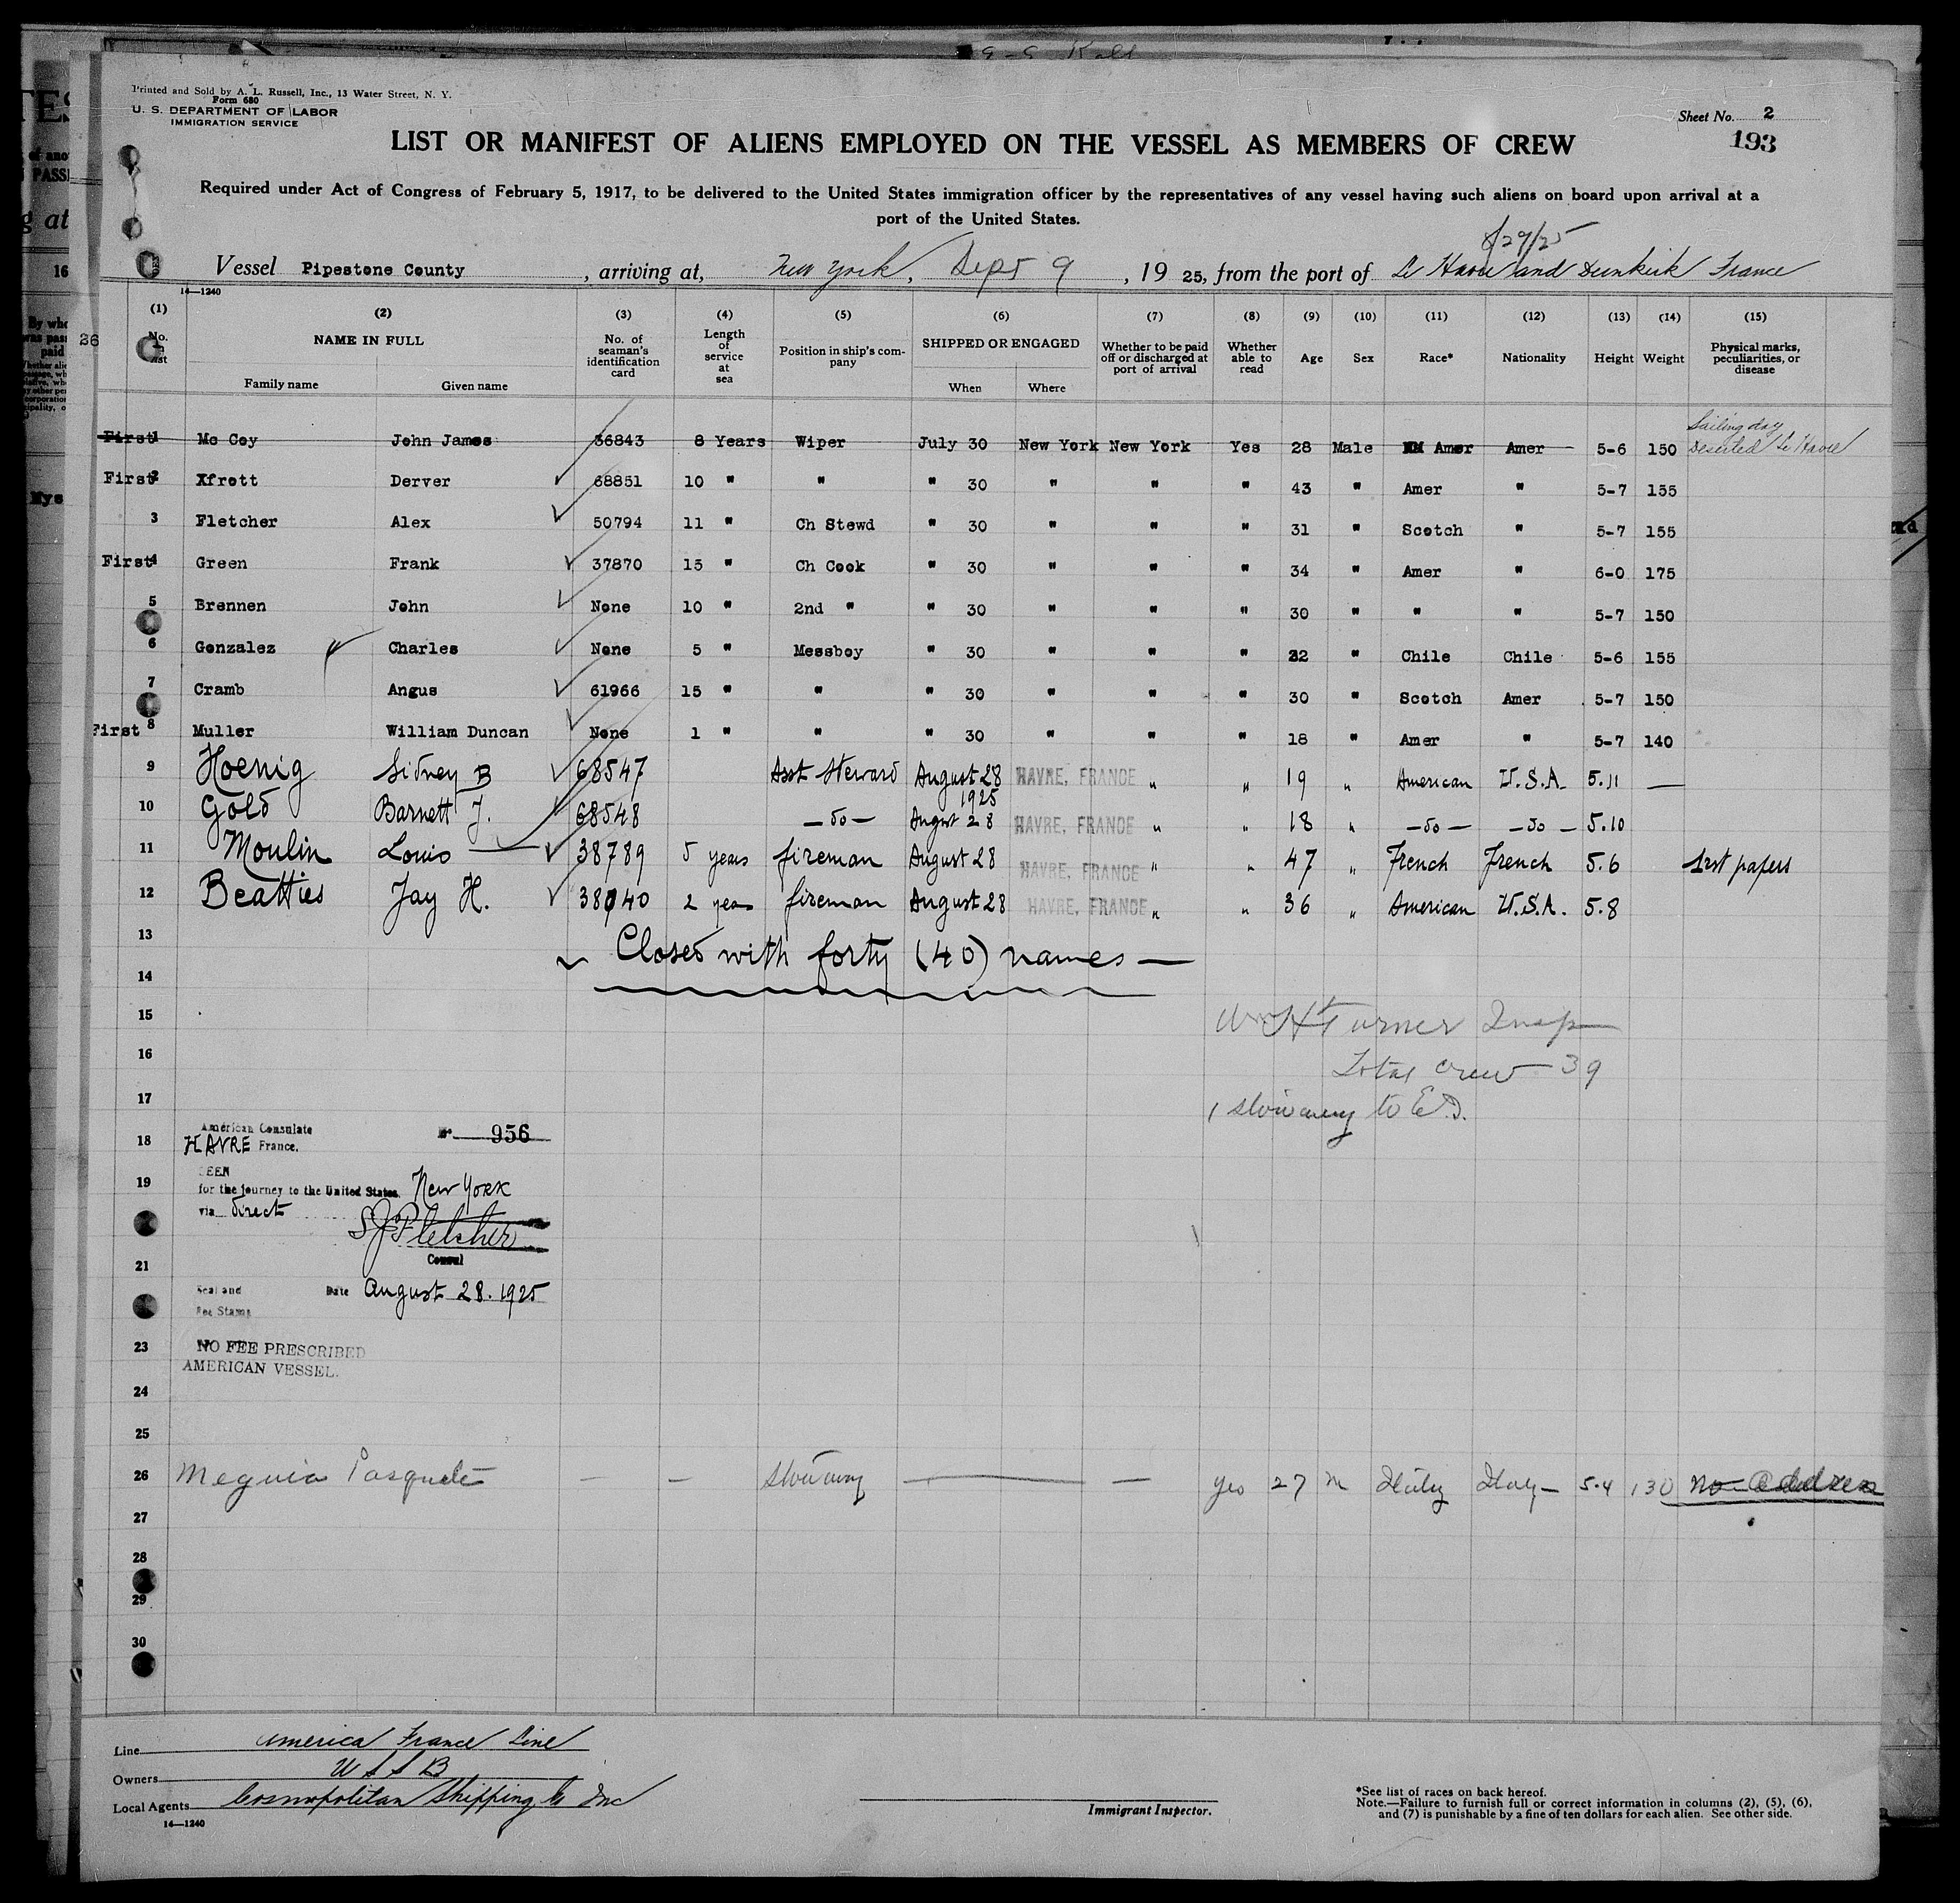 Printed and Sold by A. L. Russell, Inc., 13 Water Street, N. Y.
Form 680
U. S. DEPARTMENT OF LABOR
IMMIGRATION SERVICE
Sheet No. 2
193
LIST OR MANIFEST OF ALIENS EMPLOYED ON THE VESSEL AS MEMBERS OF CREW
Required under Act of Congress of February 5, 1917, to be delivered to the United States immigration officer by the representatives of any vessel having such aliens on board upon arrival at a
port of the United States.
8/29/25
Vessel Pipestone County, arriving at, New York, Sept 9, 19 25, from the port of Le Havre and Dunkirk France
14—1240
(1) (2) (3) (4) (5) (6) (7) (8) (9) (10) (11) (12) (13) (14) (15)
No. list NAME IN FULL Family name Given name No. of seaman's identification card Length of service at sea Position in ship's company SHIPPED OR ENGAGED When Where Whether to be paid off or discharged at port of arrival Whether able to read Age Sex Race* Nationality Height Weight Physical marks, peculiarities, or disease
Sailing day
First 1 Mc Coy John James 36843 8 Years Wiper July 30 New York New York Yes 28 Male Amer Amer 5-6 150 Deserted Le Havre
First 2 Xfrott Derver 68851 10 " " " 30 " " " 43 " Amer " 5-7 155
3 Fletcher Alex 50794 11 " Ch Stewd " 30 " " " 31 " Scotch " 5-7 155
First 4 Green Frank 37870 15 " Ch Cook " 30 " " " 34 " Amer " 6-0 175
5 Brennen John None 10 " 2nd " " 30 " " " 30 " " " 5-7 150
6 Gonzalez Charles None 5 " Messboy " 30 " " " 22 " Chile Chile 5-6 155
7 Cramb Angus 61966 15 " " " 30 " " " 30 " Scotch Amer 5-7 150
First 8 Muller William Duncan None 1 " " " 30 " " " 18 " Amer " 5-7 140
9 Hoenig Sidney B 68547 Asst Steward August 28 1925 HAVRE, FRANCE " " 19 " American U.S.A. 5.11 —
10 Gold Barnett J. 68548 — do — August 28 HAVRE, FRANCE " " 18 " — do — — do — 5.10
11 Moulin Louis 38789 5 years fireman August 28 HAVRE, FRANCE " " 47 " French French 5.6 1rst papers
12 Beatties Jay H. 38040 2 years fireman August 28 HAVRE, FRANCE " " 36 " American U.S.A. 5.8
13 Closed with forty (40) names —
14
15 Wm H Turner Insp
16 Total crew — 39
17 1 stowaway to E.I.
American Consulate No. 956
18 HAVRE France.
SEEN
19 for the journey to the United States. New York
via direct
S J Fletcher
Consul
21
Seal and Date August 28. 1925
Fee Stamp
23 NO FEE PRESCRIBED
AMERICAN VESSEL.
24
25
26 Pasquale — — Stowaway — — yes 27 m Italy Italy 5.4 130 no address
27
28
29
30
Line America France Line
Owners U S S B
Local Agents Cosmopolitan Shipping Co Inc
14—1240
Immigrant Inspector.
*See list of races on back hereof.
Note.—Failure to furnish full or correct information in columns (2), (5), (6),
and (7) is punishable by a fine of ten dollars for each alien. See other side.